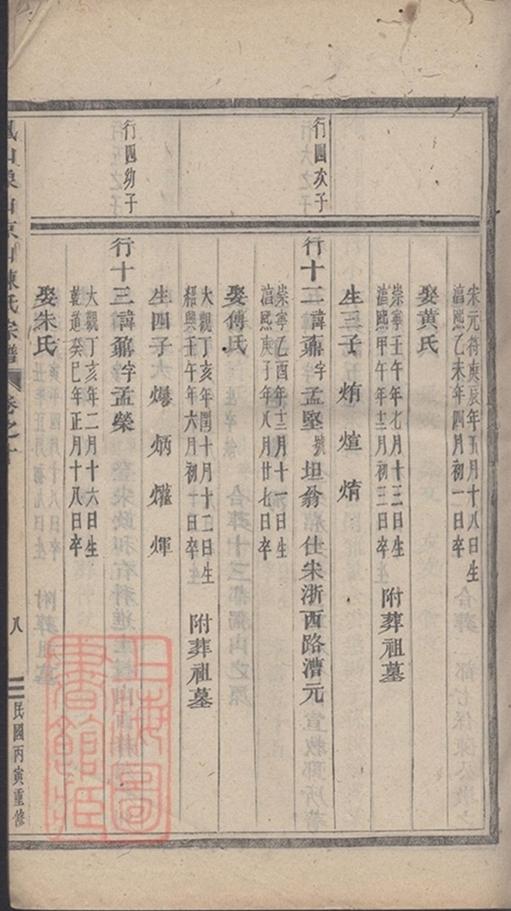 宋元符庚辰年五月十八日生
淳熙乙未年四月初一日卒
娶黃氏
崇寧壬午年七月十三日生
淳熙甲午年十二月初三日卒
附葬祖墓
生三子 烠 煊 焴
行四次子
行十二諱鼐字孟堅號坦翁仕宋浙西路漕元
崇寧乙酉年十二月十一日生
淳熙庚子年八月廿七日卒
娶傅氏
大觀丁亥年閏十月十二日生
紹興壬午年六月初十日卒
附葬祖墓
生四子 爆 炳 爟 煇
行四幼子
行十三諱鼒字孟榮
大觀丁亥年二月十六日生
乾道癸巳年正月十八日卒
娶朱氏
陳氏宗譜
卷之十
八
民國丙寅重修
上海圖書館藏